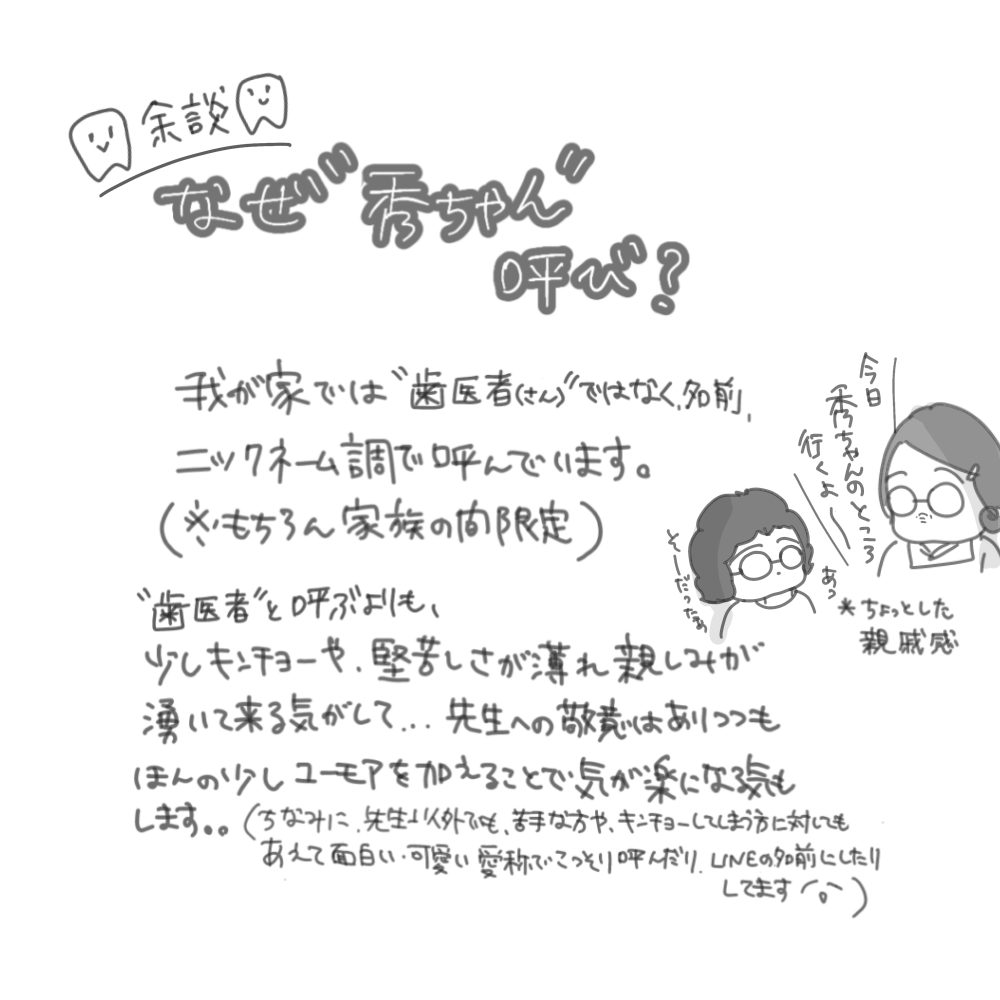 余談
なぜ"秀ちゃん"
呼び?
我が家では"歯医者(さん)"ではなく、名前、
ニックネーム調で呼んでいます。
(※もちろん家族の間限定)
"歯医者"と呼ぶよりも、
少しキンチョーや、堅苦しさが薄れ親しみが
湧いて来る気がして...先生への敬意はありつつも
ほんの少しユーモアを加えることで気が楽になる気も
します。。(ちなみに、先生以外でも、苦手な方や、キンチョーしてしまう方に対しても
あえて面白い・可愛い愛称でこっそり呼んだり、LINEの名前にしたり
してます)
今日
秀ちゃんのところ
行くよー
あっ
そーだったぁ
*ちょっとした
親戚感